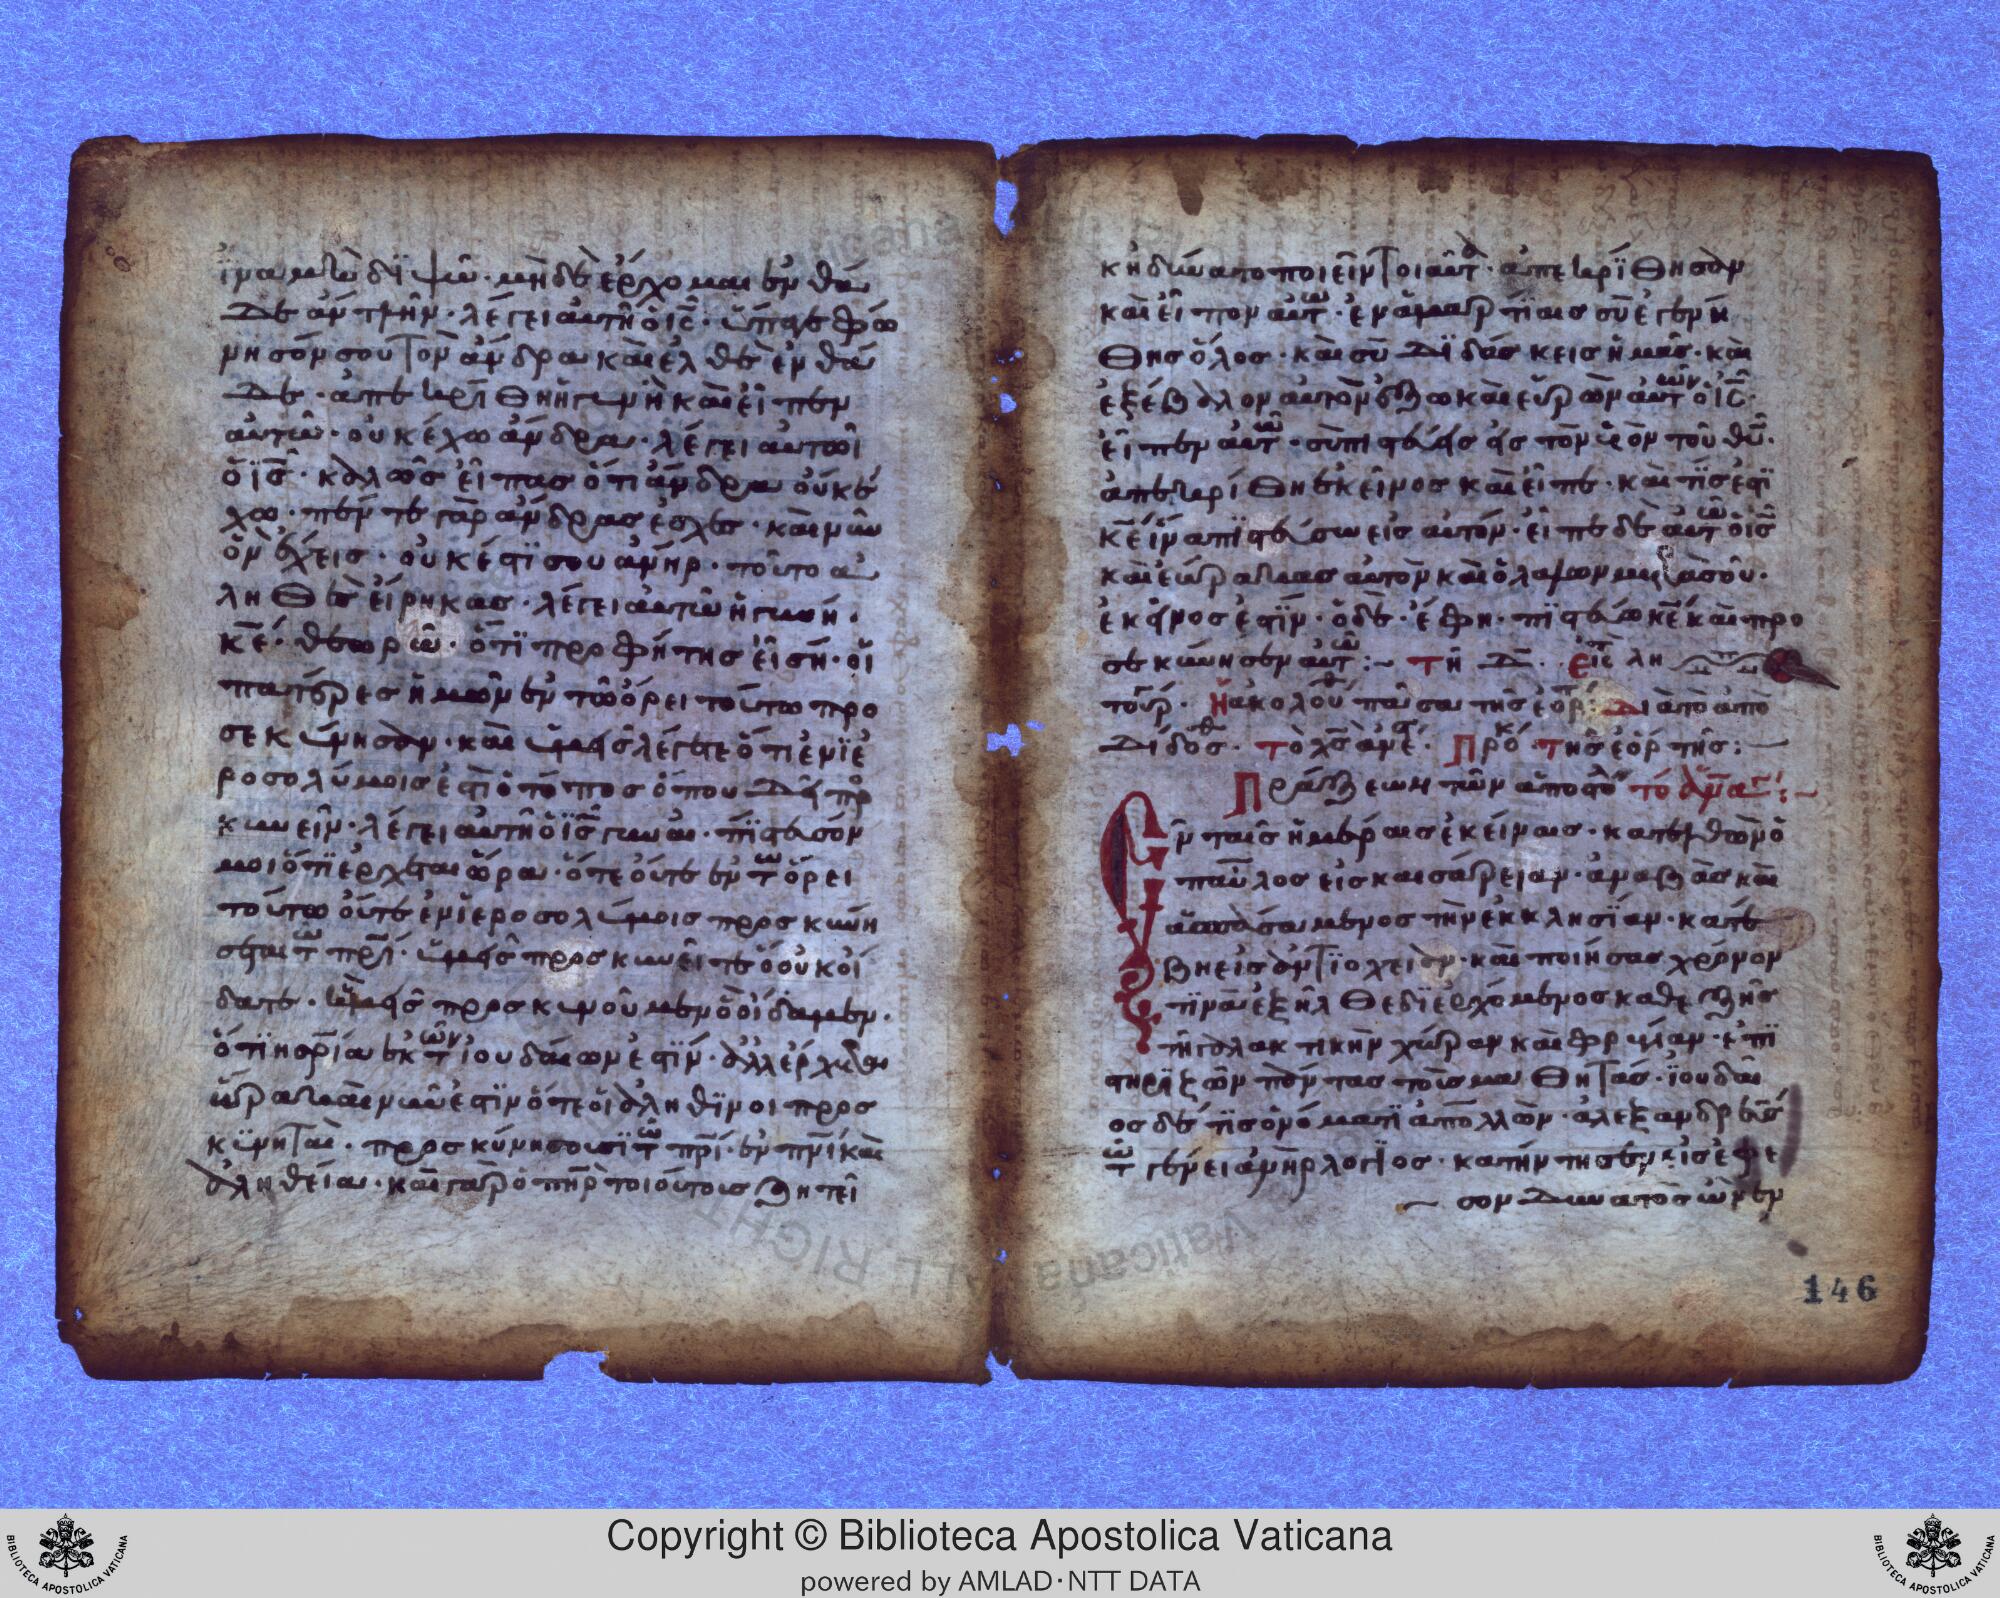 ἵνα μὴ διψῶ· μὴ δὲ ἔρχομαι ἐνθά
δε ἀντλῆν· λέγει αὐτῆ ὁ ι̅ς̅· ὕπαγε φώ
νησόν σου τὸν ἄνδρα καὶ ἐλθὲ ἐνθά
δε· ἀπεκρίθη ἡ γυνὴ καὶ εἶπεν
αὐτῶ· οὐκ ἔχω ἄνδρα· λέγει αὐτῶ
ὁ ι̅ς̅· καλῶς εἶπας ὅτι ἄνδρα οὐκ ἔ
χω· πέντε γὰρ ἄνδρας ἔσχες· καὶ νῦν
ὃν ἔχεις· οὐκ ἔστι σου ἀνήρ· τοῦτο ἀ
ληθὲς εἴρηκας· λέγει αὐτῶ ἡ γυνή·
κ̅ε̅· θεωρῶ· ὅτι προφήτης εἶ σή· οἱ
πατέρες ἡμῶν ἐν τῶ ὄρει τούτω προ
σεκύνησαν· καὶ ὑμεῖς λέγετε ὅτι ἐν ἱε
ροσολύμοις ἐστὶ ὁ τόπος ὅπου δεῖ προ
κυνεῖν· λέγει αὐτῆ ὁ ι̅ς̅ γύναι· πίστευσόν
μοι ὅτι ἔρχεται ὥρα· ὅτε οὔτε ἐν τῶ ὄρει
τούτω οὔτε ἐν ἱεροσολύμοις προσκυνή
σεται τῶ π̅ρ̅ι̅· ὑμεῖς προσκυνεῖτε ὃ οὐκ οἴ
δατε· ἡμεῖς προσκυνοῦμεν ὃ οἴδαμεν·
ὅτι ἡ σ̅ρ̅ία ἐκ τῶν ἰουδαίων ἐστίν· ἀλλ' ἔρχεται
ὥρα καὶ νῦν ἐστὶν ὅτε οἱ ἀληθινοὶ προσ
κυνηταὶ· προσκύνησουσι τῶ π̅ρ̅ι̅· ἐν π̅ν̅ι̅ καὶ
ἀληθεία· καὶ γὰρ ὁ π̅η̅ρ̅ τοιούτους ζητεῖ
κὴ δύνατο ποιεῖν τοιαῦτα· ἀπεκρίθησαν
καὶ εἶπον αὐτῶ· ἐν ἁμαρτίαις σὺ ἐγεννή
θης ὅλος· καὶ σὺ διδάσκεις ἡμᾶς· καὶ
ἐξέβαλον αὐτὸν ἔξω καὶ εὑρὼν αὐτὸν ὁ ι̅ς̅·
εἶπεν αὐτῶ· σὺ πιστεύεις εἰς τὸν υἱὸν τοῦ θ̅υ̅·
ἀπεκρίθη ἐκεῖνος καὶ εἶπε· καὶ τίς ἐστι
κ̅ε̅ ἵνα πιστεύσω εἰς αὐτόν· εἶπε δὲ αὐτῶ ὁ ι̅ς̅
καὶ ἑώρακας αὐτὸν καὶ ὁ λαλῶν μετὰ σοῦ·
ἐκεῖνος ἐστίν· ὁ δὲ· ἔφη· πιστεύω κ̅ε̅ καὶ προ
σεκύνησεν αὐτῶ:~ τῆ δ̅·
τοῦ ἡ ἀκολουθ πᾶσα τῆς ἑορτ: διὰ τὸ ἀπο
δίδοσθ· τὸ χ̅ς̅ ἀνέστ· προκ· τῆς ἑορτῆς:
Πράξεων τῶν ἀποστολ τὸ ἀνα
Εν ταῖς ἡμέραις ἐκείναις· κατελθὼν ὁ
παῦλος εἰς καισάρειαν· ἀναβὰς καὶ
ἀσπασάμενος τὴν ἐκκλησίαν· κατέ
βη εἰς ἀντιοχείαν· καὶ ποιήσας χρόνον
τινὰ ἐξῆλθε διερχόμενος καθεξῆς
τὴ γαλακτικὴν χώραν καὶ φρυγίαν· ἐπι
στηρίζων πάντας τοὺς μαθητάς· ἰουδαῖ
ος δέ τις ὀνόματι ἀπολλὼν· ἀλεξανδρεὺς
τῶ γένει ἀνὴρ λόγιος· κατήντησεν εἰς ἔφε
σον δυνατὸς ὢν ἐν
146
Copyright © Biblioteca Apostolica Vaticana
powered by AMLAD·NTT DATA